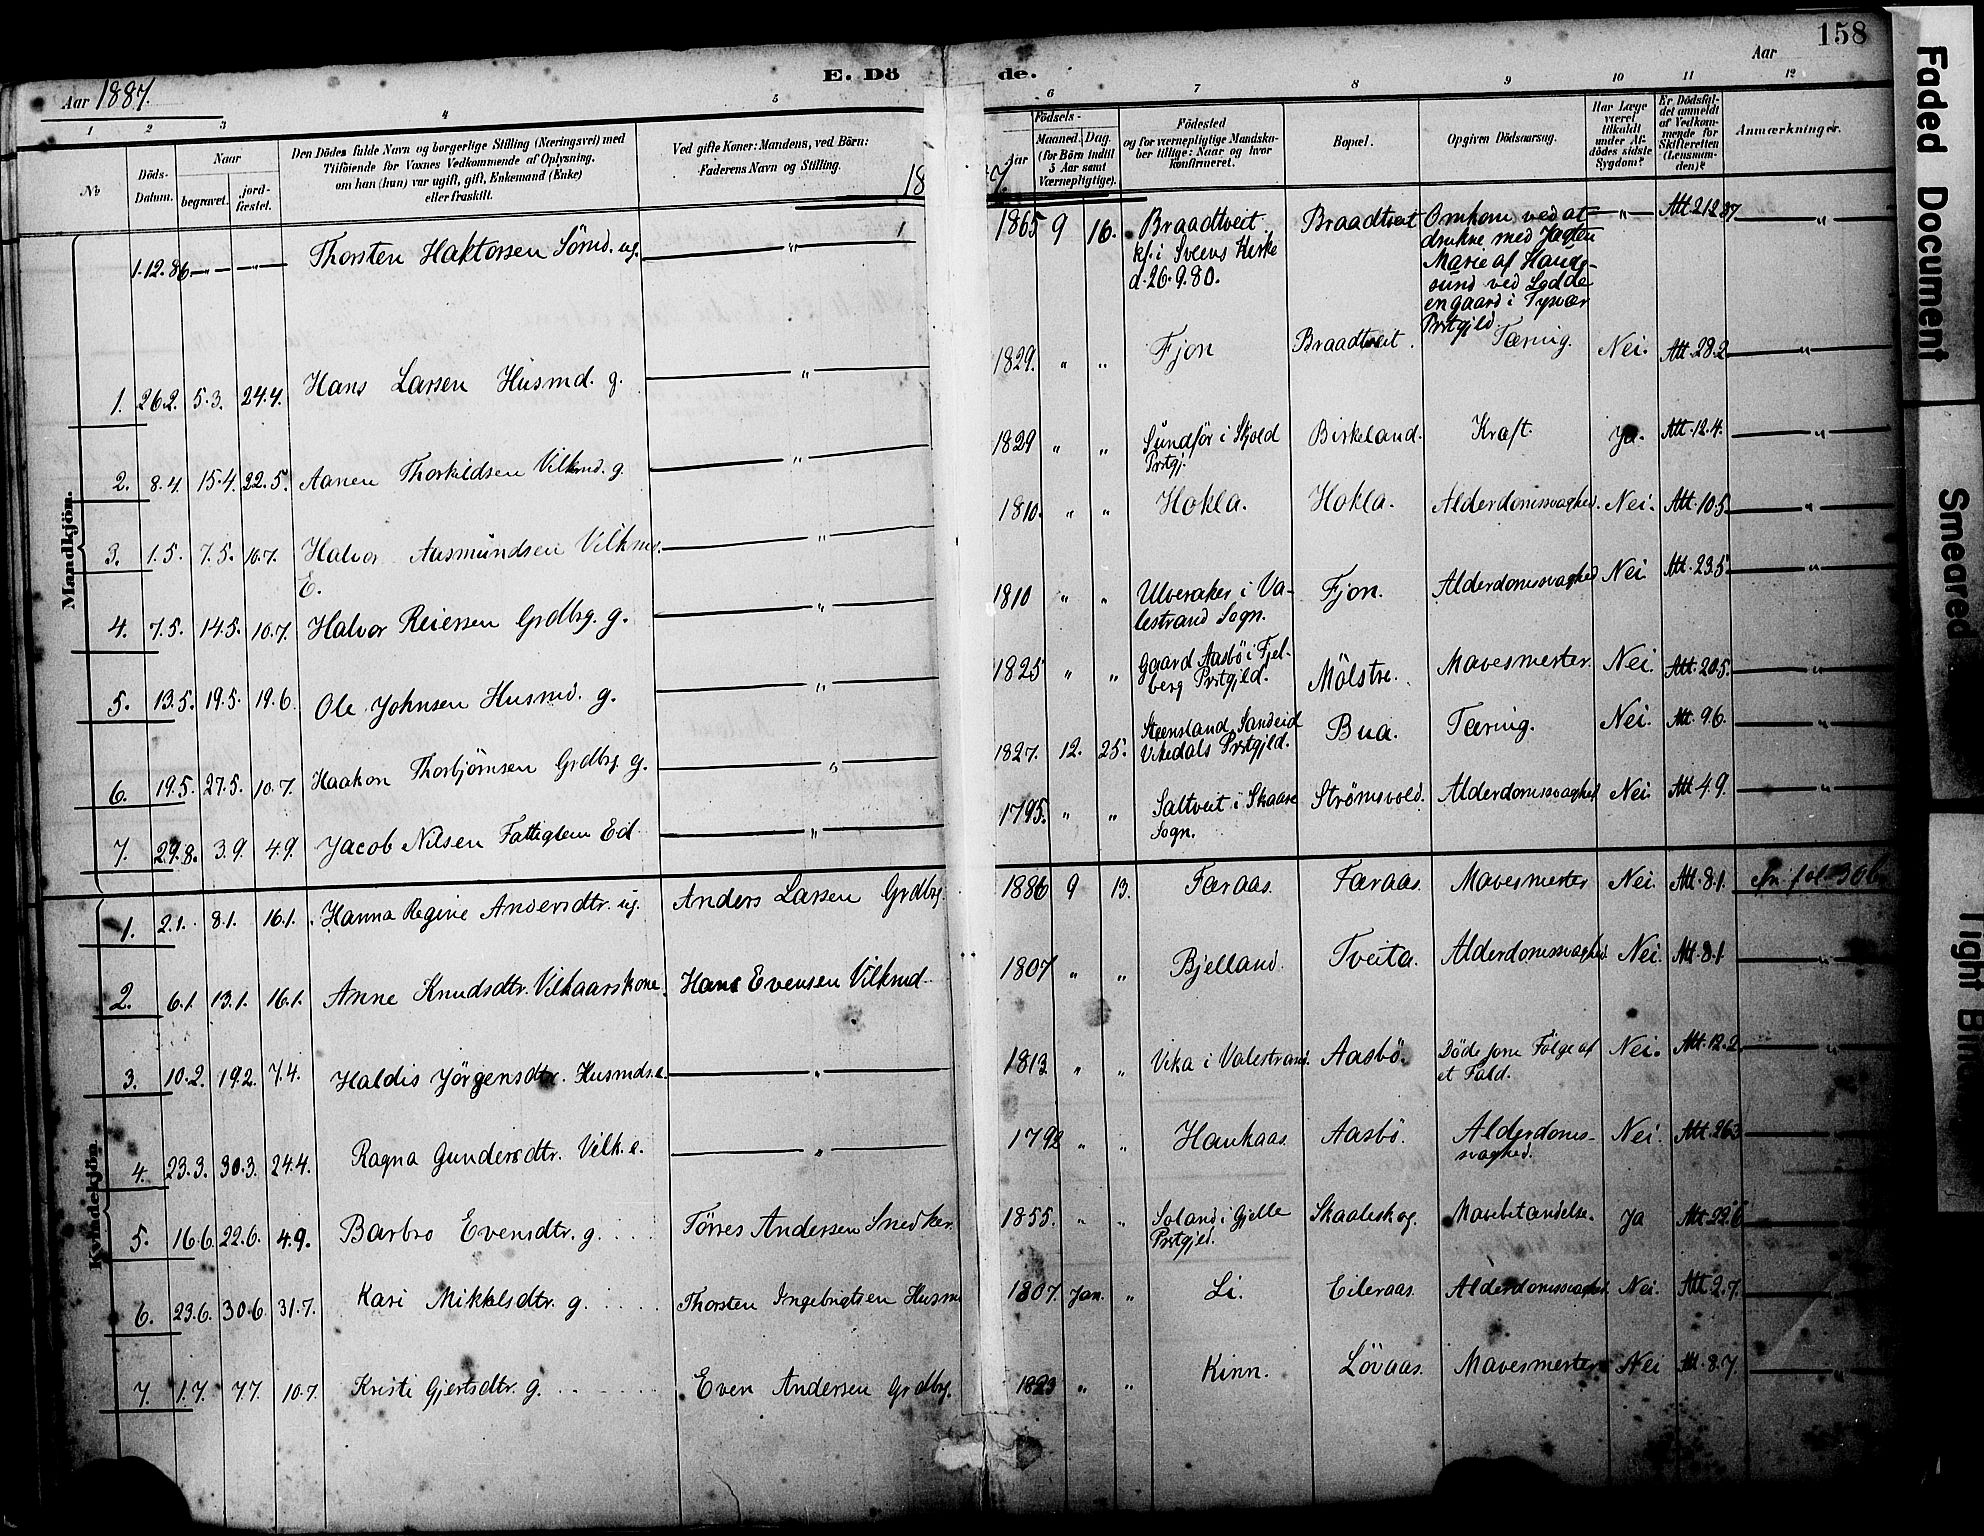 158
E. Dö de.
Aar 1887.
Aar
1 2 3 4 5 6 7 8 9 10 11 12
No
Döds-Datum.
Naar
begravet.
jord-fæstet.
Den Dödes fulde Navn og borgerlige Stilling (Næringsvei) med
Tilföiende for Voxnes Vedkommende af Oplysning,
om han (hun) var ugift, gift, Enkemand (Enke)
eller fraskilt.
Ved gifte Koner: Mandens, ved Börn:
Faderens Navn og Stilling.
Födsels-
Aar
Maaned.
Dag.
(for Börn indtil
5 Aar samt
Værnepligtige).
Födested
og for værnepligtige Mandska-
ber tillige: Naar og hvor
konfirmeret.
Bopæl.
Opgiven Dödsaarsag.
Har Læge
været
tilkaldt
under Af-
dödes sidste
Sygdom?
Er Dödsfal-
det anmeldt
af Vedkom-
mende for
Skifteretten
(Lensman-
den)?
Anmærkninger.
Mandkjön.
1.12.86 — " — — " — Thorsten Haktorsen Sömd. ug. — " — 1865 9 16. Braadtveit. Braadtveit Omkom ved at — " — Att. 212 87 "
kf. i Sveens Kirke drukne med Jagten
d. 26.9.80. Marie af Hauge-
sund ved Lodde
en gaard i Tysvær
Prstgjld.
1. 26.2. 5.3. 24.4. Hans Larsen Husmd. g. — " — 1829. " " Fjon Braadtveit. Tæring. Nei. Att. 28.2 — " —
2. 8.4. 15.4. 22.5. Aanen Thorkildsen Vilkmd. g. — " — 1829 " " Sundför i Skjold Birkeland. Kraft. Ja. Att. 12.4. — " —
Prstgj.
3. 1.5. 7.5. 10.7. Halvor Aasmundsen Vilkmd. — " — 1810. " " Hokla. Hokla. Alderdomssvaghed. Nei. Att. 10.5. — " —
E.
4. 7.5. 14.5. 10.7. Halvor Reiersen Grdbrg. g. — " — 1810 " " Ulveraker i Va- Fjon. Alderdomssvaghed Nei. Att. 23.5 — " —
lestrand Sogn.
5. 13.5. 19.5. 19.6. Ole Johnsen Husmd. g. — " — 1825 " " Gaard Aasbö i Fjel- Mölstre. Mavesmerter. Nei. Att. 20.5. — " —
berg Prstgjld.
6. 19.5. 27.5. 10.7. Haakon Thorbjörnsen Grdbrg. g. — " — 1827. 12. 25. Steensland, Sandeid Bua. Tæring. Nei. Att. 9.6. — " —
Vikedals Prstgjld.
7. 29.8. 3.9. 4.9. Jacob Nilsen Fattiglem Ed. — " — 1795. " " Saltveit i Skaare Strömsvold. Alderdomssvaghed Nei. Att. 4.9. — " —
Sogn.
Kvindekjön.
1. 2.1. 8.1. 16.1. Hanna Regine Andersdtr. ug. Anders Larsen Grdbrg. 1886 9 13. Færaas. Færaas. Mavesmerter Nei. Att. 8.1.
2. 6.1. 13.1. 16.1. Anne Knudsdtr. Vilkaarskone. Hans Evensen Vilkmd. 1807 " " Bjelland. Tveita. Alderdomssvaghed. Nei. Att. 8.1 — " —
3. 10.2. 19.2. 7.4. Haldis Jörgensdtr. Husmds.e. — " — 1813 " " Vika i Valestrand. Aasbö. Döde som Fölge af Nei. Att. 12.2. — " —
et Fald.
4. 23.3. 30.3. 24.4. Ragna Gundersdtr. Vilk.e. — " — 1792 " " Haukaas. Aasbö. Alderdoms- Nei. Att. 26.3 — " —
svaghed.
5. 16.6. 22.6. 4.9. Barbro Evensdtr. g. Törres Andersen Snedker. 1855. " " Soland i Gjelle Skaaleskog. Mavebetændelse. Ja Att. 22.6 — " —
Prstgjeld.
6. 23.6. 30.6. 31.7. Kari Mikkelsdtr. g. Thorsten Ingebrigtsen Husm 1807. Jan. " Li. Eileraas. Alderdomssvaghed. Nei. Att. 2.7. — " —
7. 1.7. 7.7. 10.7. Kristi Gjertsdtr. g. Even Andersen Grdbrg. 1823 " " Kinn. Lövaas. Mavesmerter Nei Att. 8.7. — " —
Faded Document
Smeared
Tight Bin